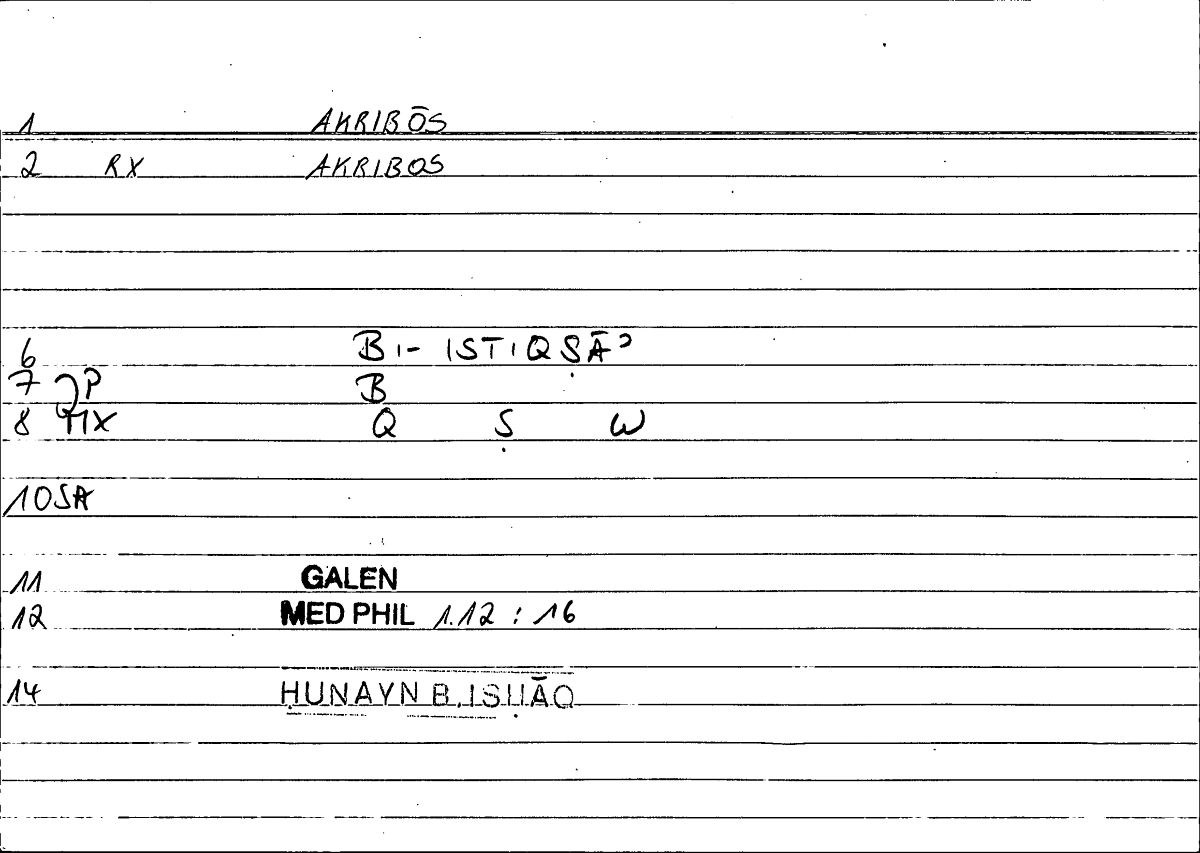 1 AKRIBŌS
2 RX AKRIBOS
6 BI- ISTIQṢĀʾ
7 P B
8 MX Q Ṣ W
10 SA
11 GALEN
12 MED PHIL 1.12 : 16
14 ḤUNAYN B. ISḤĀQ